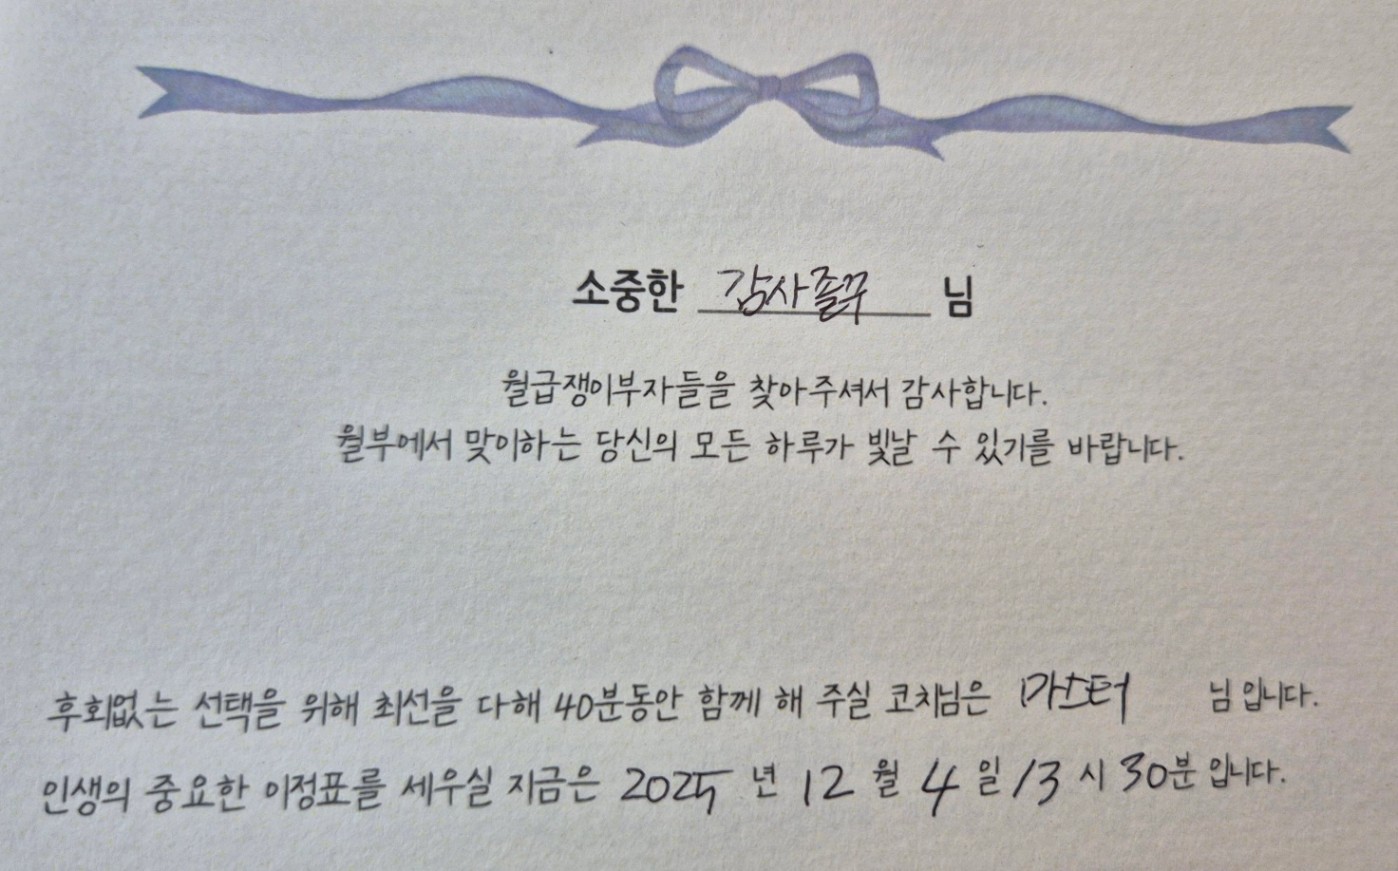 소중한 감사졸꾸 님
월급쟁이부자들을 찾아주셔서 감사합니다.
월부에서 맞이하는 당신의 모든 하루가 빛날 수 있기를 바랍니다.
후회없는 선택을 위해 최선을 다해 40분동안 함께 해 주실 코치님은 마스터 님 입니다.
인생의 중요한 이정표를 세우실 지금은 2025 년 12 월 4 일 13 시 30분 입니다.